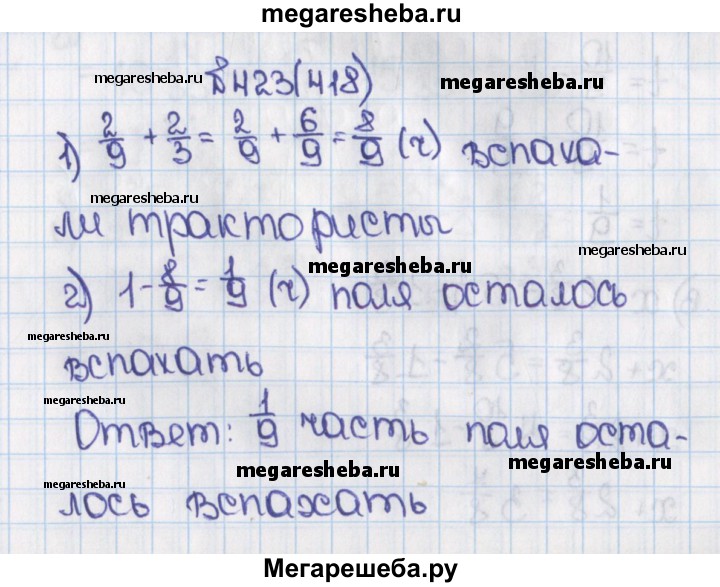 megaresheba.ru
megaresheba.ru №423(418) megaresheba.ru
1) 2/9 + 2/3 = 2/9 + 6/9 = 8/9 (ч) вспаха-
megaresheba.ru
ли трактористы megaresheba.ru
2) 1 - 8/9 = 1/9 (ч) поля осталось
megaresheba.ru
megaresheba.ru
вспахать
megaresheba.ru
Ответ: 1/9 часть поля оста-
megaresheba.ru megaresheba.ru
лось вспахать
megaresheba.ru
Мегарешеба.ру